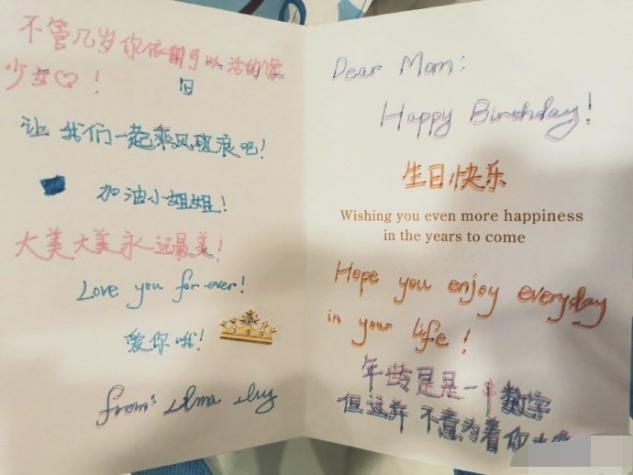 不管几岁你依可以活的像
少女♡!
旧
让我们一起乘风破浪吧!
加油小姐姐!
大美大美永远最美!
Love you for ever!
爱你哦!
from:
Dear Mom:
Happy Birthday!
生日快乐
Wishing you even more happiness
in the years to come
Hope you enjoy everyday
in your life!
年龄是是一串数字
但这并不意为着你